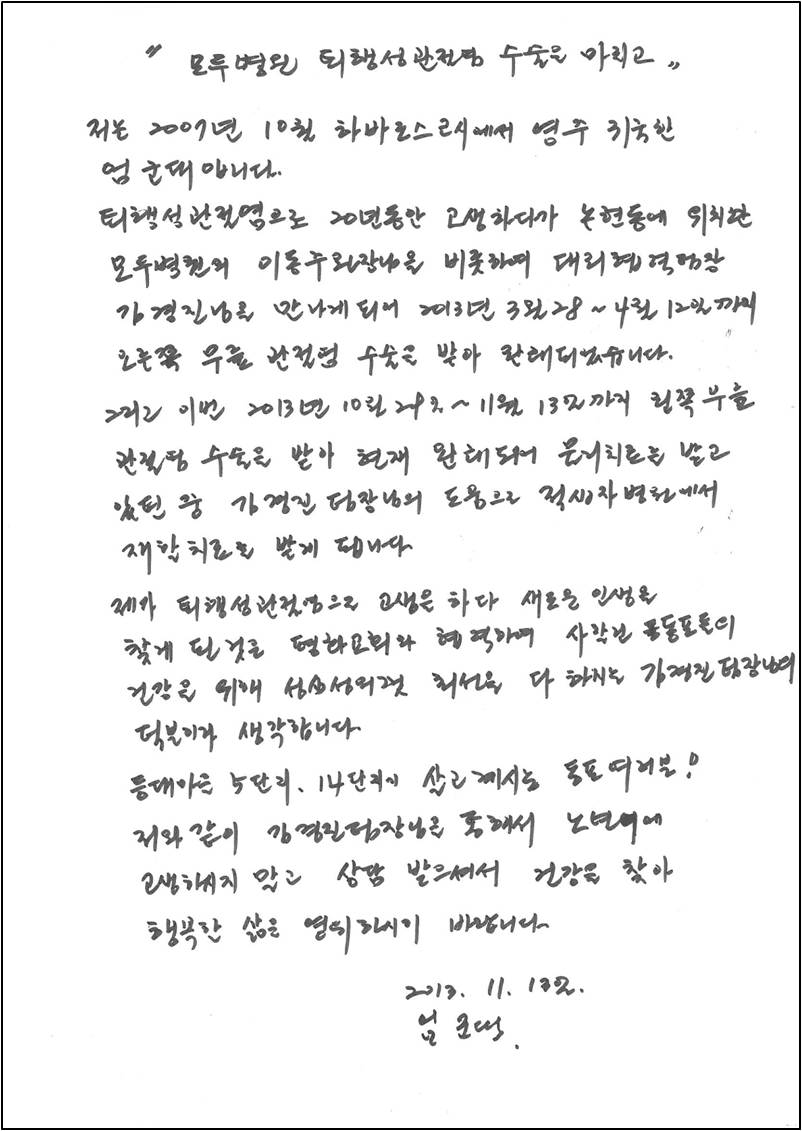 " 모두병원 퇴행성관절염 수술을 마치고 "
저는 2009년 10월 하바로스크시에서 영주 귀국한
엄 군대입니다.
퇴행성관절염으로 20년동안 고생하다가 논현동에 위치한
모두병원의 이동우원장님을 비롯하여 대외협력팀장
김경진님을 만나게 되어 2013년 3월 28 ~ 4월 12일까지
오른쪽 무릎 관절염 수술을 받아 완쾌되었습니다.
그리고 이번 2013년 10월 29일 ~ 11월 13일까지 왼쪽무릎
관절염 수술을 받아 현재 완쾌되어 물리치료를 받고
있던 중 김경진 팀장님의 도움으로 적십자병원에서
재활치료를 받게 됩니다.
제가 퇴행성관절염으로 고생을 하다 새로운 인생을
찾게 된 것을 평화교회와 협력하여 사할린 동포들의
건강을 위해 성심성의껏 최선을 다 하시는 김경진팀장님의
덕분이라 생각합니다.
등대마을 5단지, 14단지에 살고 계시는 동포 여러분!
저와 같이 김경진팀장님을 통해서 노년에
고생하시지 말고 상담 받으셔서 건강을 찾아
행복한 삶을 영위하시기 바랍니다.
2013. 11. 13일.
엄 군대.